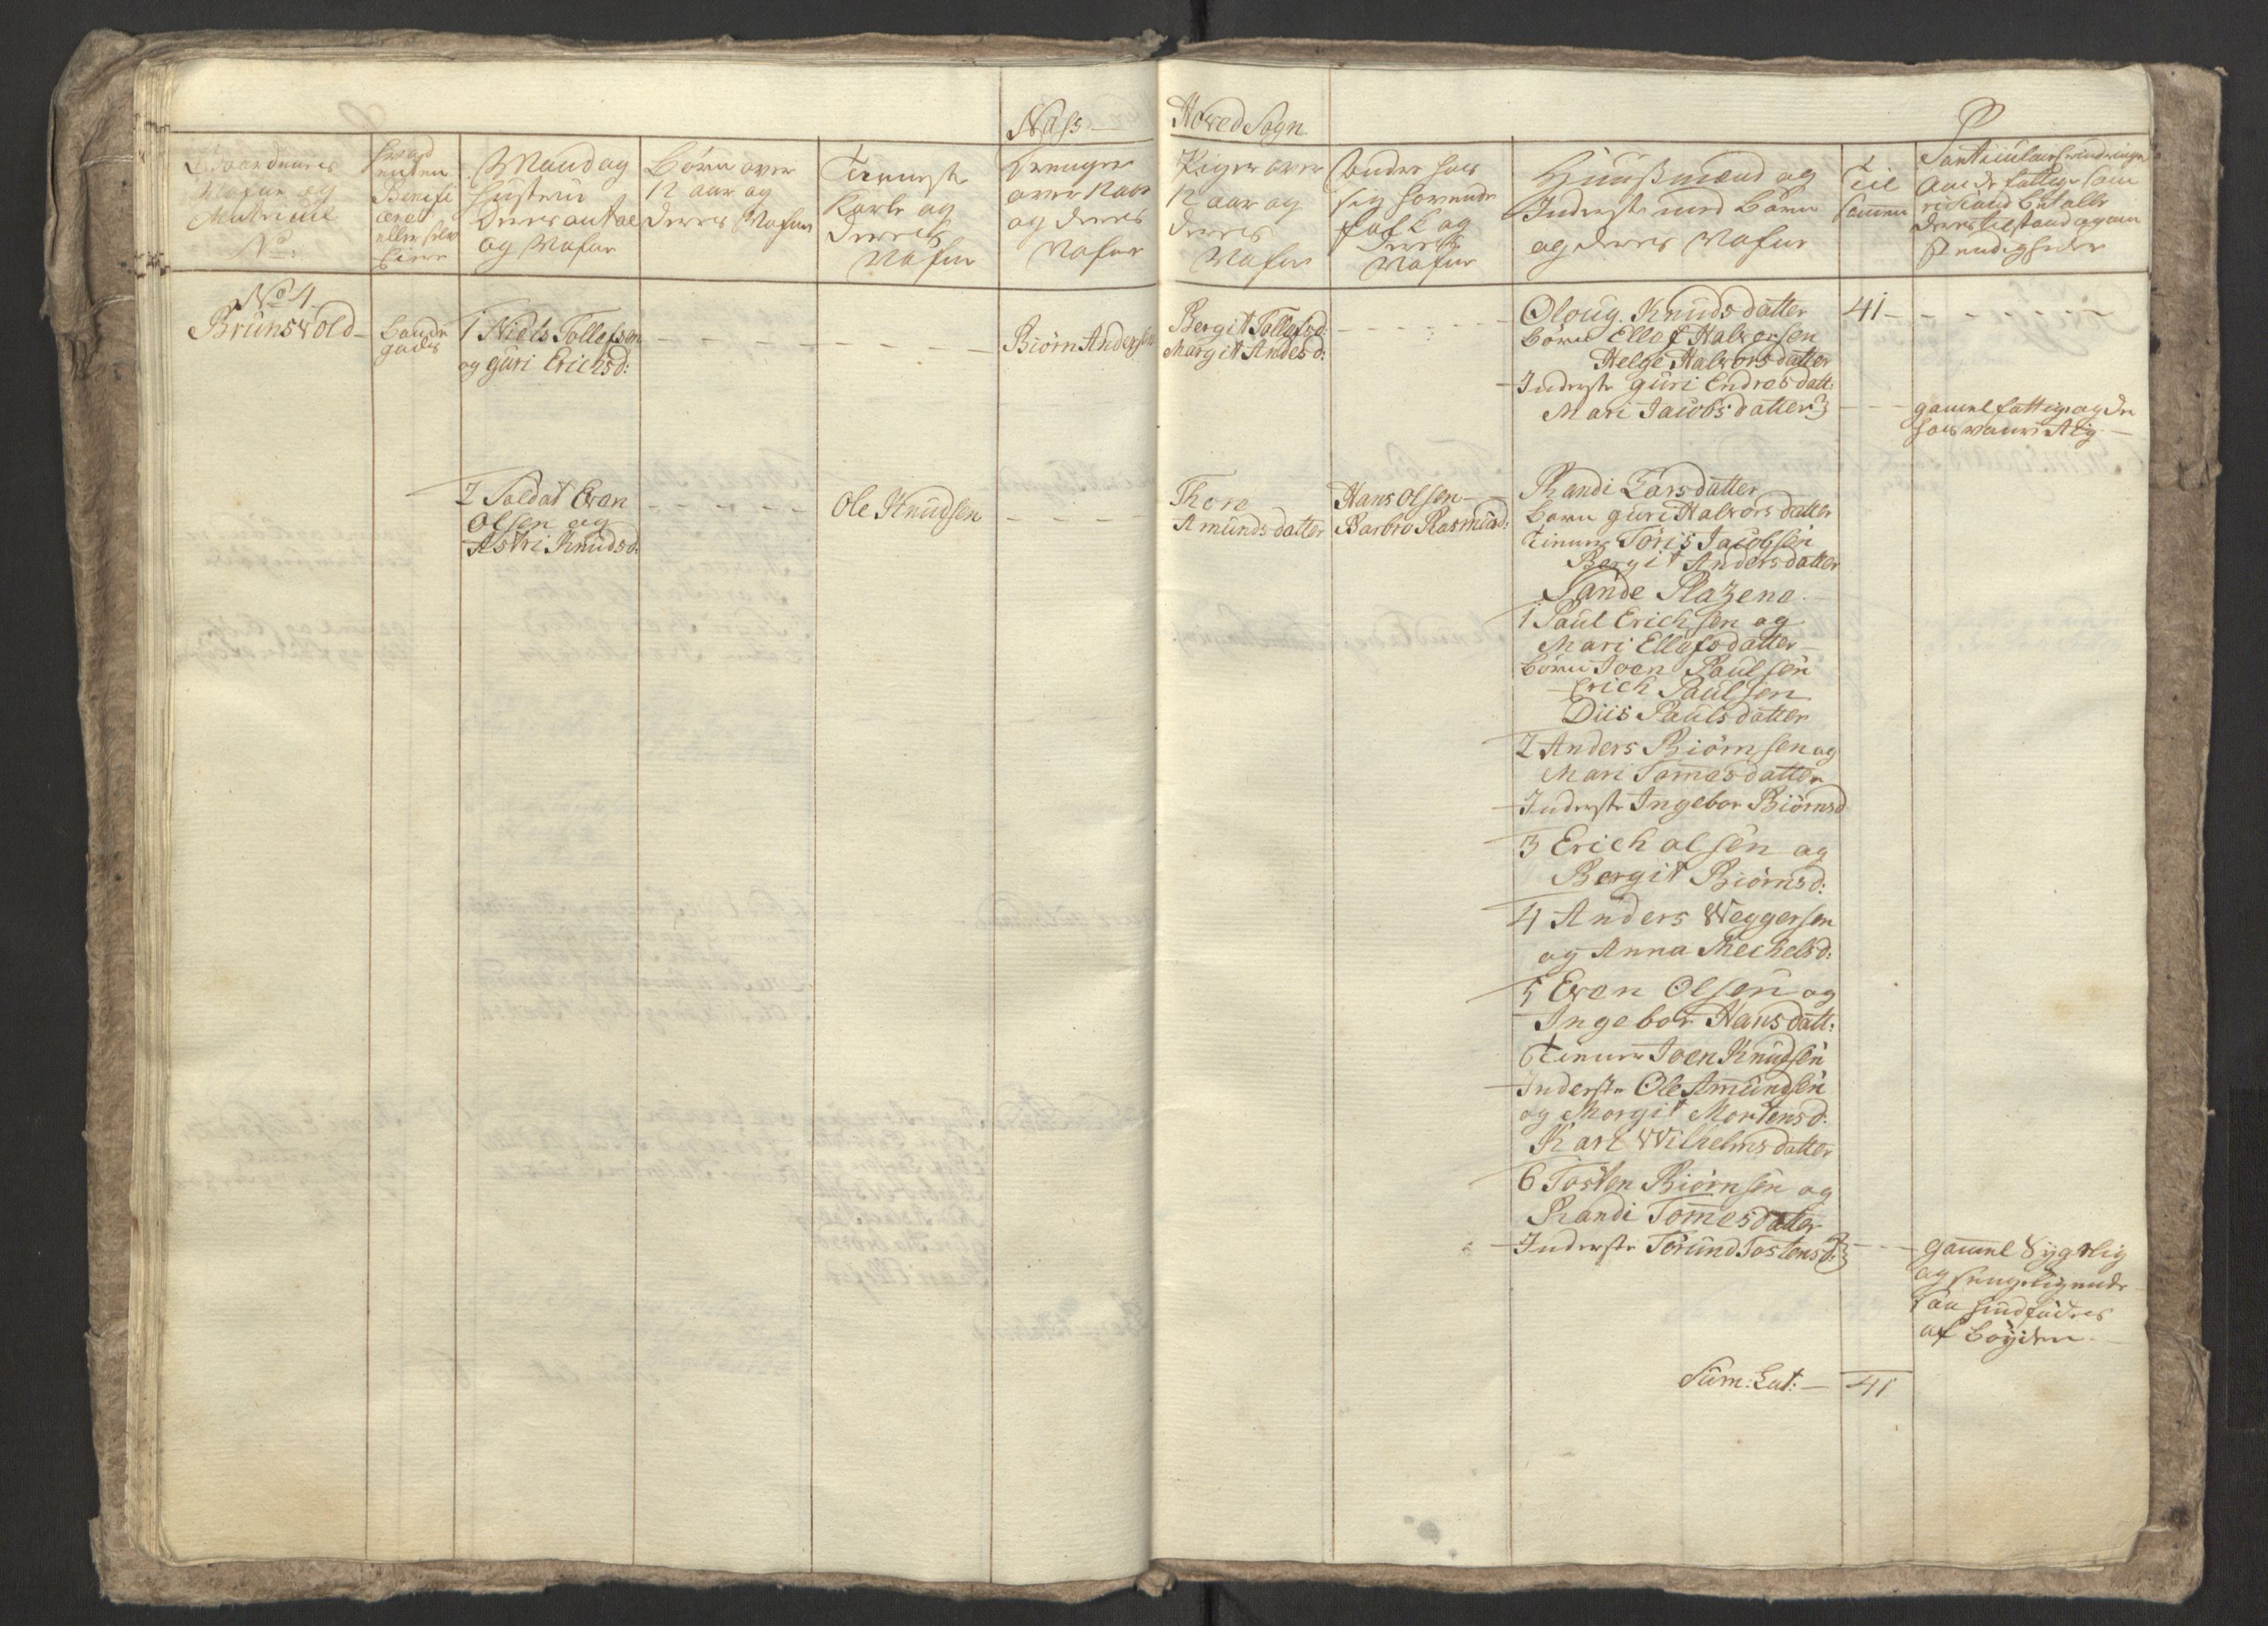 Næss
Hoved Sogn
Gaardenes
Nafne og
Matricul
No:
Hvad
enten
Benefi
ceret
eller selv
Eiere
Mand og
Hustrue
deres antal
og Nafne
Børn over
12 aar og
deres Nafne
Tieneste
Karle og
deres
Nafne
Drenger
over 12 aar
og deres
Nafne
Piger over
12 aar og
deres
Nafne
Andre hos
sig havende
folk og
deres
Nafne
Huussmænd og
Inderster med Børn
og deres Nafne
Til
sammen
aando fattige som
deres tilstand og om
stendigheder
No 4
Brunsvold
Bonde
gods
1 Niels Tollefsen
og Guri Erichsd:
Biørn Andersen
Bergit Tollefsd:
Margit Andersd:
Oloug Knudsdatter
Børn Ellef Halvorsen
Helge Halvorsdatter
Inderste Guri Endresdatt:
Mari Jacobsdatter
41
gammel fattig og
2 Soldat Even
Olsen og
Astri Knudsd:
Ole Knudsen
Thore
Amundsdatter
Hans Olsen
Barbro Rasmusd:
Randi Larsdatter
Børn Guri Halvorsdatter
tiener Tøris Jacobsen
Bergit Andersdatter
Sande Plazene
1 Paul Erichsen og
Mari Ellefsdatter
Børn Joen Paulsen
Erich Paulsen
Diis Paulsdatter
2 Anders Biørnsen og
Mari Tommesdatter
Inderste Ingebor Biørnsd
3 Erich olsen og
Bergit Biørnsd:
4 Anders Weggersen
og Anna Mechelsd:
5 Even Olsen og
Ingebor Hansdatt:
tiener Joen Knudsen
Inderste Ole Amundsen
og Margit Mortensd:
Kari Wilhelmsdatter
6 Tosten Biørnsen og
Randi Tommesdatter
Inderste Jørund Tostensd:
gammel Sygelig
og sengeliggende
af Bøyden
Sum: Lat: — 41